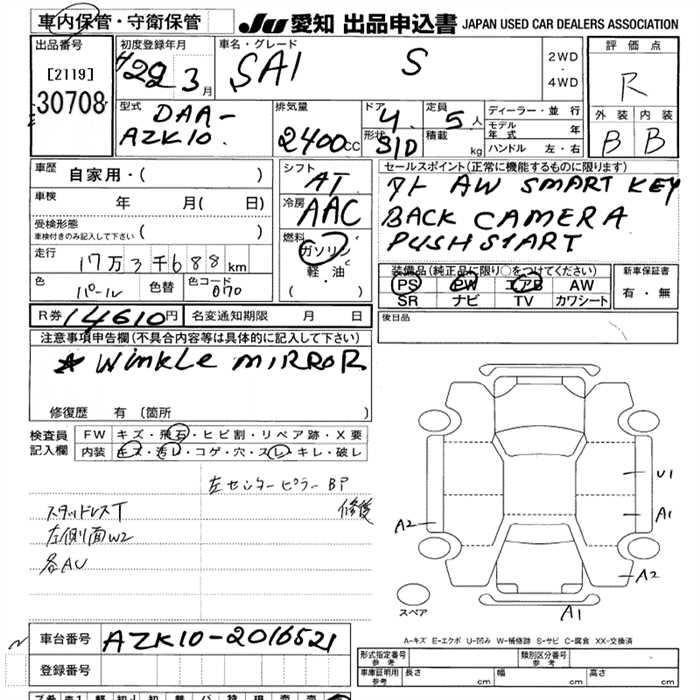 車内保管・守衛保管
JU 愛知 出品申込書 JAPAN USED CAR DEALERS ASSOCIATION
出品番号
[2119]
30708
初度登録年月
H22 3月
車名・グレード
SAI S
2WD
・
4WD
評価点
R
外装 内装
B B
型式
DAA-
AZK10
排気量
2400cc
ドア
4
形状
SID
定員
5人
積載
kg
ディーラー・並行
モデル年式 年
ハンドル 左・右
車歴
自家用・( )
車検
年 月( 日)
受検形態
車検付きのみ記入して下さい ( )
走行
17万3千688km
色
パール
色替
色コード
070
シフト
AT
冷房
AAC
燃料
ガソリン
軽・油
( )
セールスポイント(正常に機能するものに限ります)
AW SMART KEY
BACK CAMERA
PUSH START
装備品(純正品に限り○をつけてください)
PS PW エアB AW
SR ナビ TV カワシート
新車保証書
有・無
R券 14610円
名変通知期限 月 日
後日品
注意事項申告欄(不具合内容等は具体的に記入して下さい)
* WINKLE MIRROR
修復歴 有(箇所 )
検査員
記入欄
FW キズ・飛石・ヒビ割・リペア跡・X要
内装 キズ・汚レ・コゲ・穴・スレ・キレ・破レ
左センターピラーBP
修復
スタッドレスT
左側面W2
各AU
U1
A1
A2
A2
A1
スペア
A-キズ E-エクボ U-凹み W-補修跡 S-サビ C-腐食 XX-交換済
車台番号
AZK10-2016521
登録番号
形式指定番号
参考
類別区分番号
参考
車庫証明用
参考
長さ cm 幅 cm 高さ cm